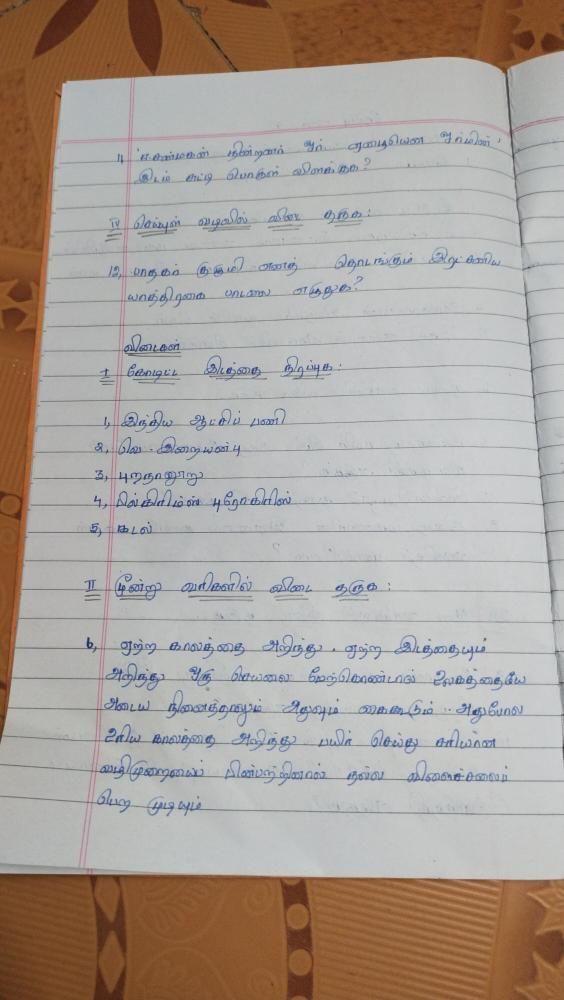 11, நின்றனர்
இடம் சுட்டி பொருள் விளக்குக?
IV செய்யுள் வடிவில் விடை தருக :
12, பாதகர் குழுமி எனத் தொடங்கும் இரட்சணிய
யாத்திரிகை பாடலை எழுதுக?
விடைகள்
I கோடிட்ட இடத்தை நிரப்புக :
1, இந்திய ஆட்சிப் பணி
2, வெ. இறையன்பு
3, புறநானூறு
4, பில்கிரிம்ஸ் புரோகிரஸ்
5, கடல்
II மூன்று வரிகளில் விடை தருக :
6, ஏற்ற காலத்தை அறிந்து. ஏற்ற இடத்தையும்
அறிந்து ஒரு செயலை மேற்கொண்டால் உலகத்தையே
அடைய நினைத்தாலும் அதுவும் கைகூடும். அதுபோல
உரிய காலத்தை அறிந்து பயிர் செய்து சரியான
வழிமுறையைப் பின்பற்றினால் நல்ல விளைச்சலைப்
பெற முடியும்